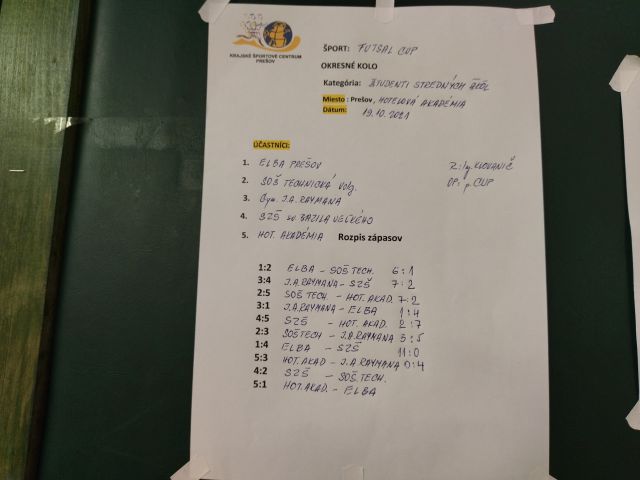 KRAJSKÉ ŠPORTOVÉ CENTRUM
PREŠOV
ŠPORT: FUTSAL CUP
OKRESNÉ KOLO
Kategória: ŠTUDENTI STREDNÝCH ŠKÔL
Miesto : Prešov, HOTELOVÁ AKADÉMIA
Dátum: 19.10.2021
ÚČASTNÍCI:
1. ELBA PREŠOV
2. SOŠ TECHNICKÁ
3. Gym. J.A. RAYMANA
4. SZŠ sv. BAZILA VEĽKÉHO
5. HOT. AKADÉMIA Rozpis zápasov
1:2 ELBA - SOŠ TECH. 6:1
3:4 J.A.RAYMANA - SZŠ 7:2
2:5 SOŠ TECH - HOT.AKAD. 7:2
3:1 J.A.RAYMANA - ELBA 1:4
4:5 SZŠ - HOT. AKAD. 2:7
2:3 SOŠ TECH - J.A.RAYMANA 5:5
1:4 ELBA - SZŠ 11:0
5:3 HOT. AKAD - J.A RAYMANA 0:4
4:2 SZŠ - SOŠ TECH.
5:1 HOT.AKAD. - ELBA